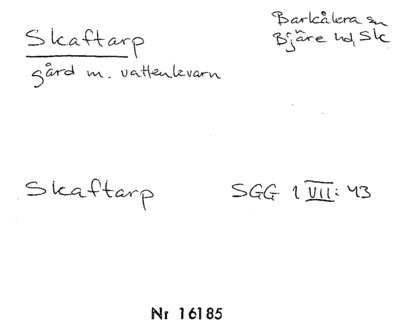 Skaftarp
Barkåkra sn
Bjäre hd, Sk
gård m. vattenkvarn
Skaftarp SGG 1 VII: 43
Nr 16185